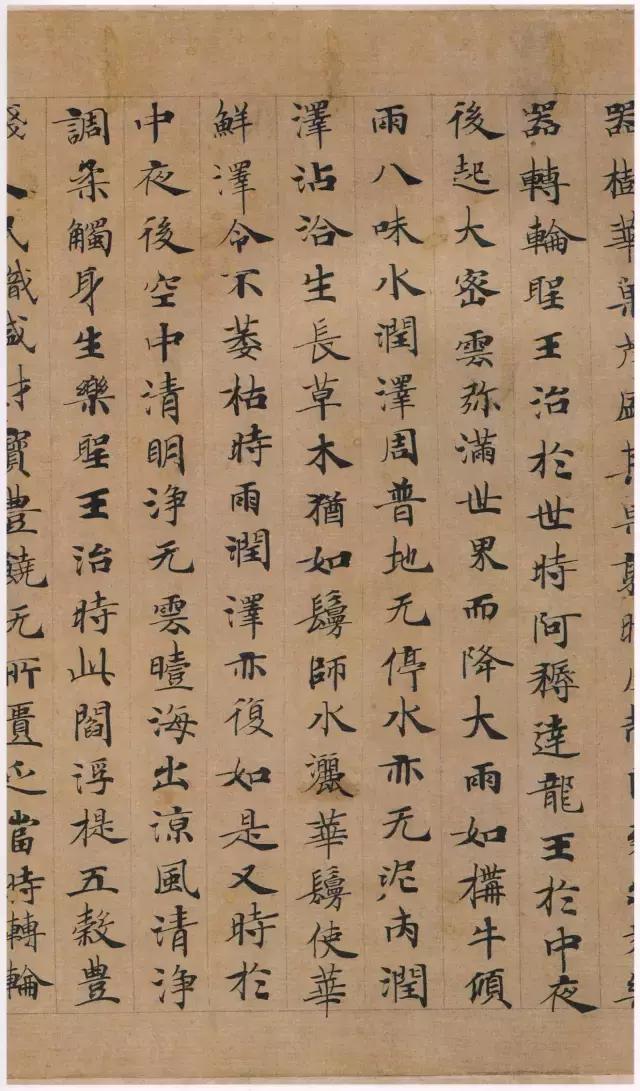 器樹華菓茂盛其菓熟時
器轉輪聖王治於世時阿耨達龍王於中夜
後起大密雲弥滿世界而降大雨如搆牛頃
雨八味水潤澤周普地无停水亦无泥潤
澤沾洽生長草木猶如鬘師水灑華鬘使華
鮮澤令不萎枯時雨潤澤亦復如是又時於
中夜後空中清明浄无雲曀海出涼風清浄
調柔觸身生樂聖王治時此閻浮提五穀豊
賤人民熾盛財寶豊饒无所匱乏當時轉輪